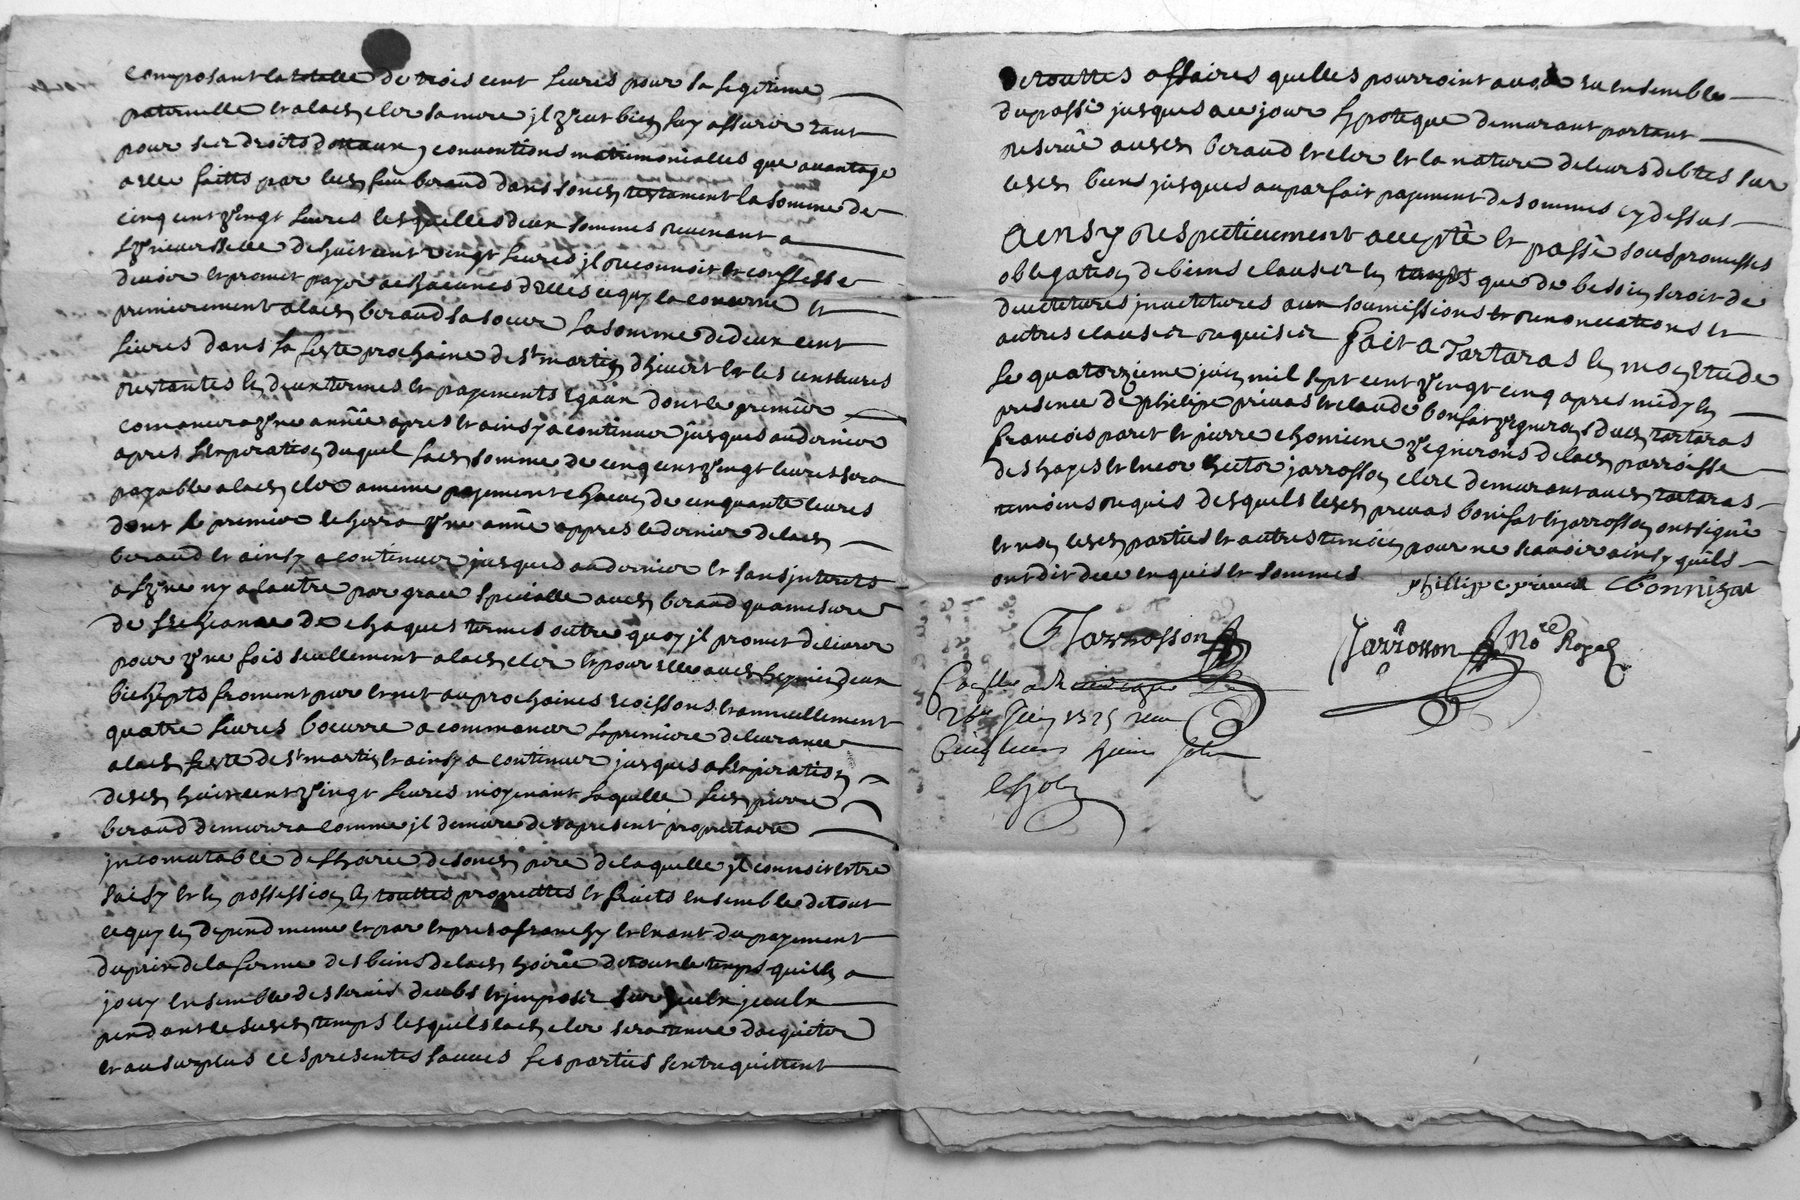 composant la totelle de trois cent livres pour sa legitime
paternelle et a lad cler sa mere il veut bien luy assurer tant
pour ses droits dottaux, conventions matrimonialles que avantage
a elle faitts par led feu beraud dans sond testament la somme de
cinq cent vingt livres lesquelles deux sommes revenant a
universselle de huit cent vingt livres il reconnoit et confesse
devoir et promet payer a chacunes delles ce quy la concerne et
premierement a lad beraud sa soeur la somme de deux cent
livres dans la feste prochaine de st martin d'hivert et les cent livres
restantes en deux termes et payements egaux dont le premier
comancera une année apres et ainsy a continuer jusques au dernier
apres l'expiration duquel lad somme de cinq cent vingt livres sera
payable a lad cler a meme payement chacun de cinquante livres
dont le premier echerra une année appres le dernier de lad
beraud et ainsy a continuer jusques au dernier et sans interets
a l'une ny a l'autre par grace specialle aud beraud qua mesure
de l'echeance de chaques termes outre quoy il promet delivrer
pour une fois seullement a lad cler et pour elle aud deux
bichepts froment pur et net au prochaines moissons et annuellement
quatre livres boeurre a commancer la premiere delivrance
a lad feste de st martin et ainsy a continuer jusques a l'expiration
desd huit cent vingt livres moyenant laquelle led pierre
beraud demeurera comme il demeure des apresent proprietaire
incomutable de l'hoirie de sond pere de laquelle il connoit estre
saisy et en possession en touttes propriettes et fruits ensemble de tout
ce quy en depend meme et par expres afranchy et exant du payement
du prix de la ferme des biens de lad hoirie de tout le temps quil en a
jouy ensemble des laods deubs et imposés sur
pendant le susd temps lesquels lad cler sera tenue dacquiter
et au surplus ces presentes sauves les parties sentrequittent
de touttes affaires quelles pourroint avoir eu ensemble
du passé jusques a ce jour hypoteque demurant portant
reservé auxd beraud et cler et la nature de leurs debtes sur
lesd biens jusques au parfait payement de sommes cy dessus
Ainsy respectivement accepté et passé sous promesses
obligation de biens clauses en temps que de besoin seroit de
directitures invectitures aux soumissions et renonciations et
autres clauses requises fait a Tartaras en mon etude
le quatorzieme juin mil sept cent vingt cinq apres midy en
presence de philipe privas et claude bonifat vigneron dud tartaras
francois paret et pierre chomiene vignerons de lad parroisse
des hayes et encor hector jarrosson clerc demurant aud tartaras
temoins requis desquels lesd privas bonifat et jarrosson ont signé
et non lesd parties et autres temoin pour ne scavoir ainsy quils
ont dit de ce enquis et sommes
phillippe privat CBonnifat
Jarrosson
Jarrosson No.re Royal
26e Juin 1725 recu